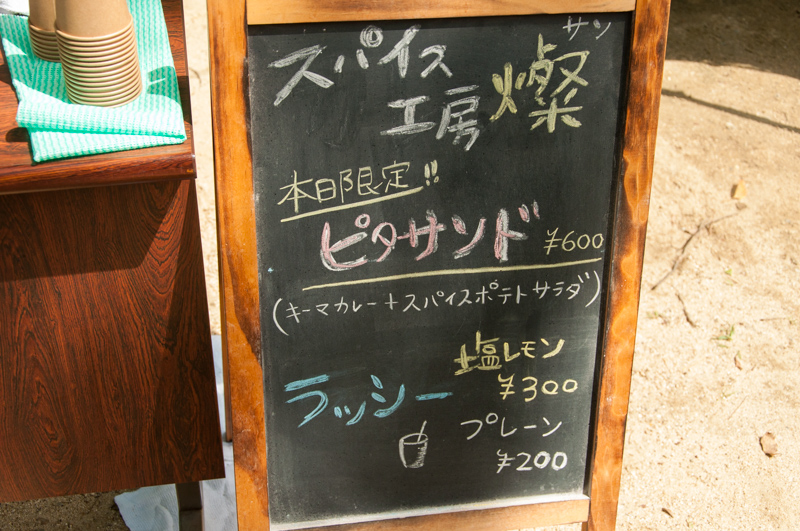 スパイス
サン
工房 燦
本日限定!!
ピタサンド ¥600
(キーマカレー+スパイスポテトサラダ)
ラッシー
塩レモン
¥300
プレーン
¥200